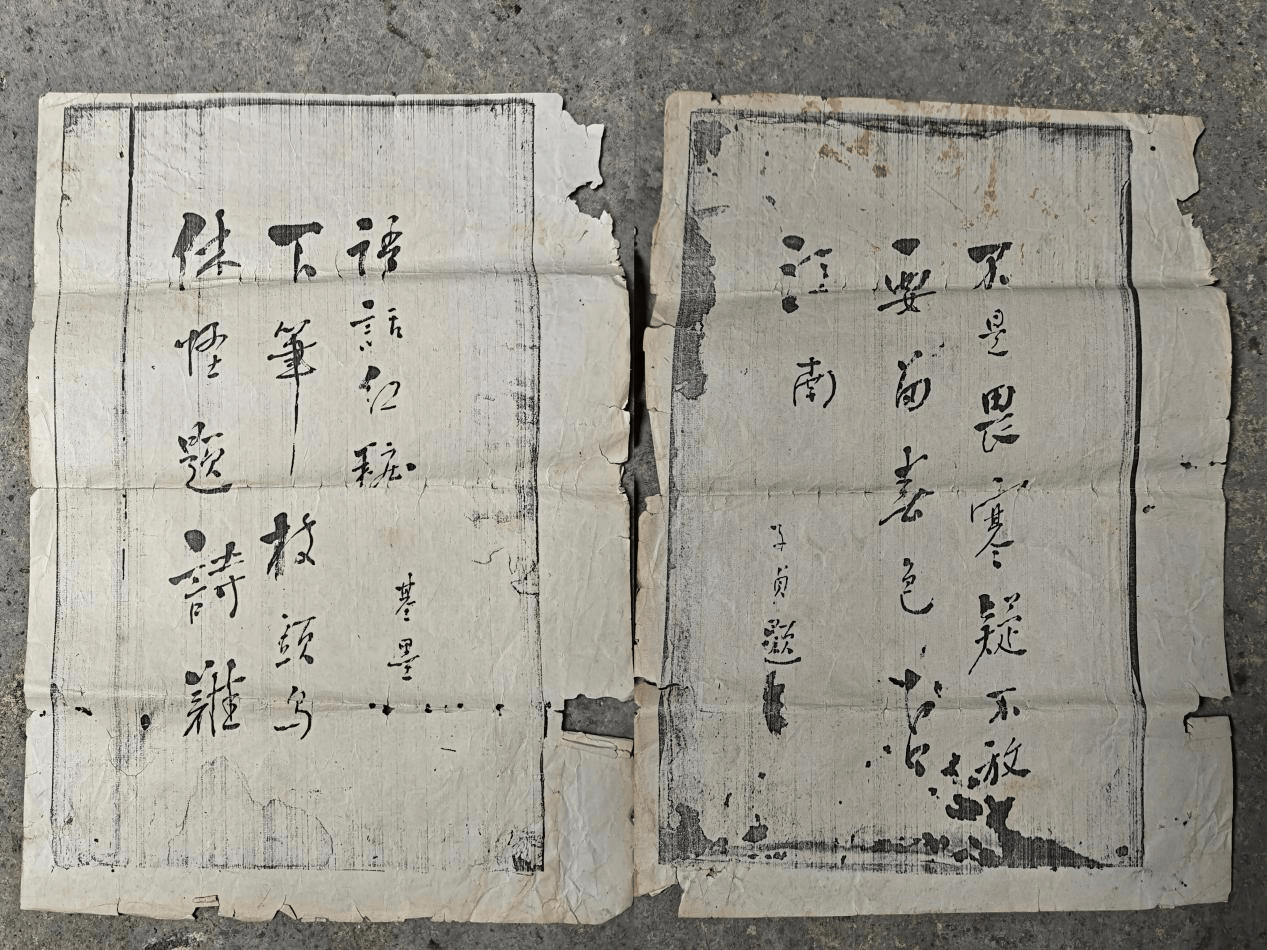 休怪題詩難
下筆枝頭鳥
語話紅糚
基墨
不是畏寒疑不放
要留春色占
江南
子貞題